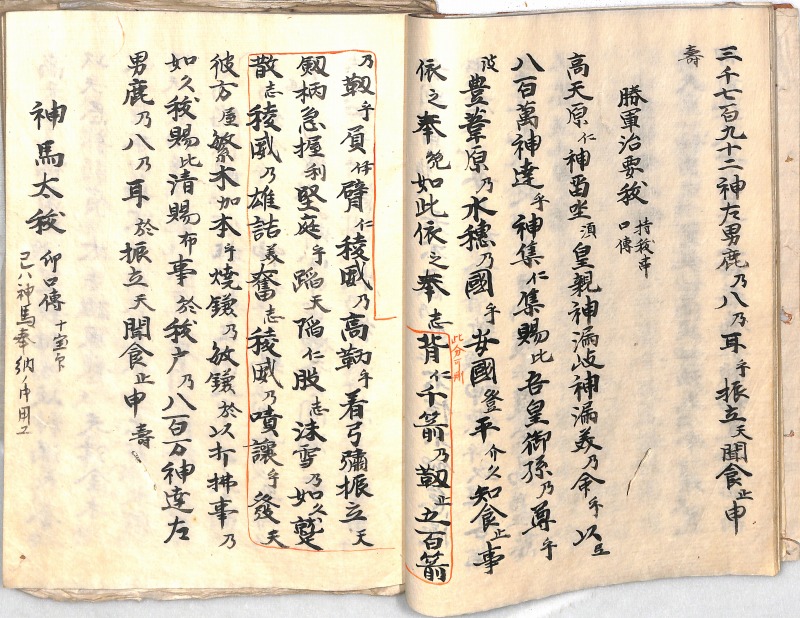 三千七百九十二神左男鹿乃八乃耳乎振立天聞食止申
壽
勝軍治要祓 持秡串 口傳
高天原仁神留坐須皇親神漏岐神漏美乃命乎以互
八百萬神達乎神集仁集賜比吾皇御孫乃尊乎
波豊葦原乃水穗乃國乎安國登平介久知食止事
依之奉 如此依之奉志背仁千箭乃靱止五百箭
此分可用
乃靱乎負 臂仁稜威乃高鞆乎着弓彌振立天
劔柄急握利堅庭乎蹈天陷仁股志沫雪乃如久蹴
散志稜威乃雄詰美奮志稜威乃嘖讓乎發天
彼方屋繁木加本乎燒鎌乃敏鎌於以打拂事乃
如久祓賜比清賜布事於祓戸乃八百万神達左
男鹿乃八乃耳於振立天聞食止申 壽
神馬太祓 卯口傳
神馬奉納ノ時用